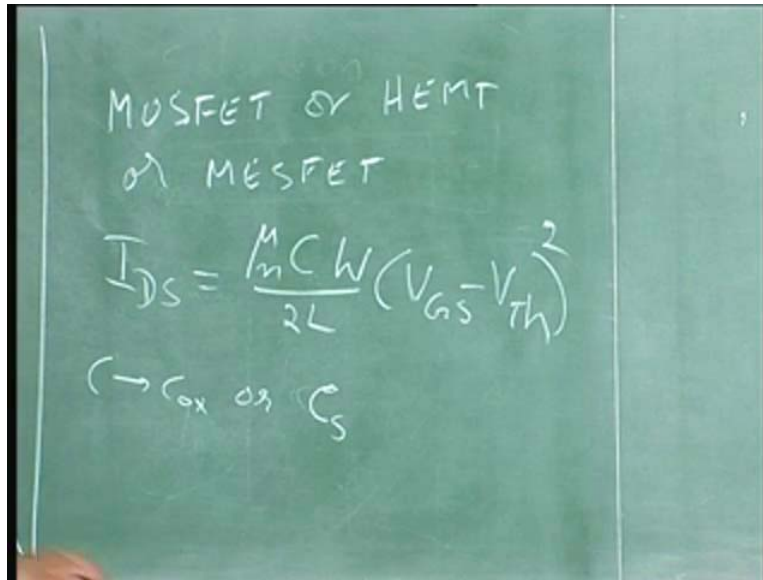 MOSFET or HEMT
or MESFET
I_DS = μ_n C W / 2L (V_GS - V_Th)^2
C → C_ox or C_s